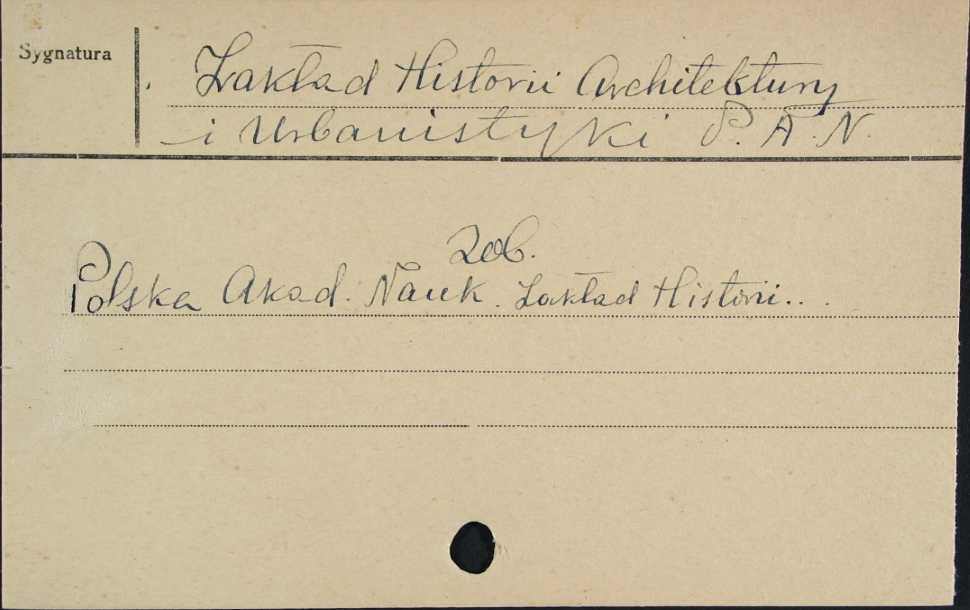 Sygnatura
Zakład Historii Architektury
i Urbanistyki P. A. N.
Zob.
Polska Akad. Nauk. Zakład Historii...